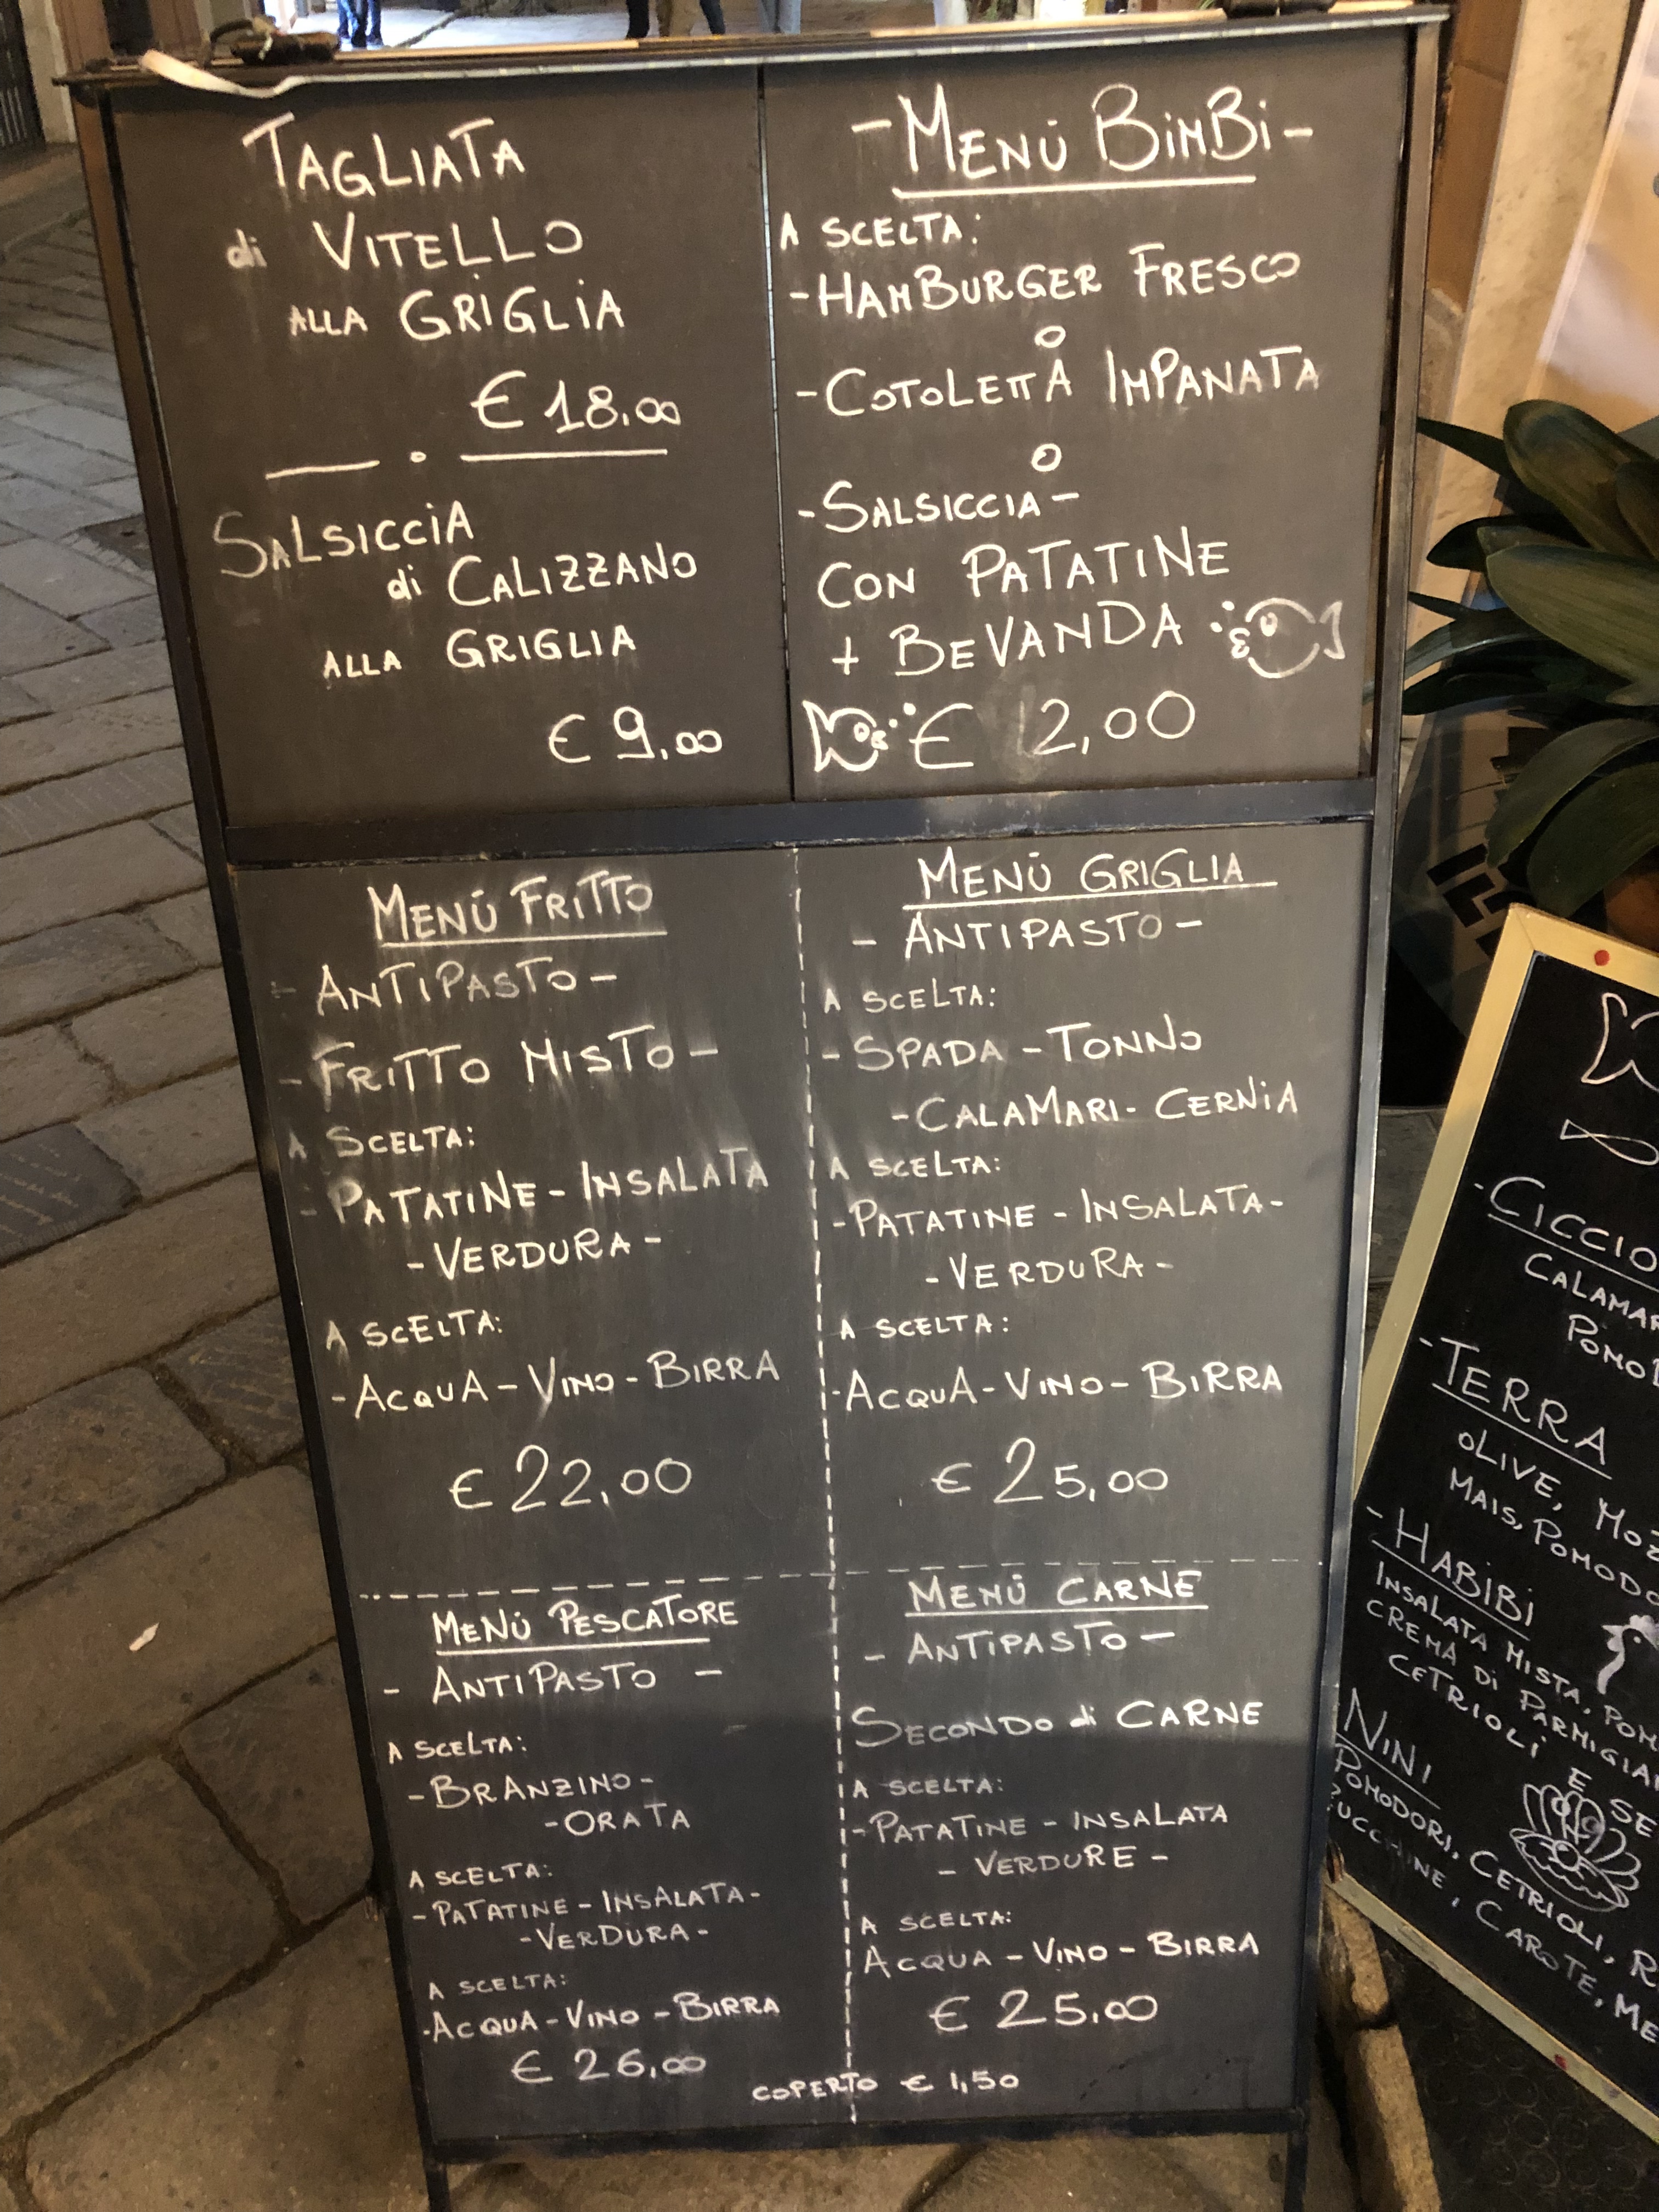 TAGLIATA
di VITELLO
ALLA GRIGLIA
€ 18,00
SALSICCIA
di CALIZZANO
ALLA GRIGLIA
€ 9,00
- MENÙ BIMBI -
A SCELTA:
- HAMBURGER FRESCO
O
- COTOLETTA IMPANATA
O
- SALSICCIA -
CON PATATINE
+ BEVANDA
€ 12,00
MENÙ FRITTO
- ANTIPASTO -
- FRITTO MISTO -
A SCELTA:
- PATATINE - INSALATA
- VERDURA -
A SCELTA:
- ACQUA - VINO - BIRRA
€ 22,00
MENÙ GRIGLIA
- ANTIPASTO -
A SCELTA:
- SPADA - TONNO
- CALAMARI - CERNIA
A SCELTA:
- PATATINE - INSALATA -
- VERDURA -
A SCELTA:
- ACQUA - VINO - BIRRA
€ 25,00
MENÙ PESCATORE
- ANTIPASTO -
A SCELTA:
- BRANZINO -
- ORATA
A SCELTA:
- PATATINE - INSALATA -
- VERDURA -
A SCELTA:
- ACQUA - VINO - BIRRA
€ 26,00
MENÙ CARNE
- ANTIPASTO -
SECONDO di CARNE
A SCELTA:
- PATATINE - INSALATA
- VERDURE -
A SCELTA:
ACQUA - VINO - BIRRA
€ 25,00
COPERTO € 1,50
- CICCIO
- TERRA
OLIVE,
MAIS, POMODO
- HABIBI
INSALATA MISTA, POM
CREMA DI PARMIGIA
CETRIOLI E SE
NINI
POMODORI, CETRIOLI, R
CAROTE, ME